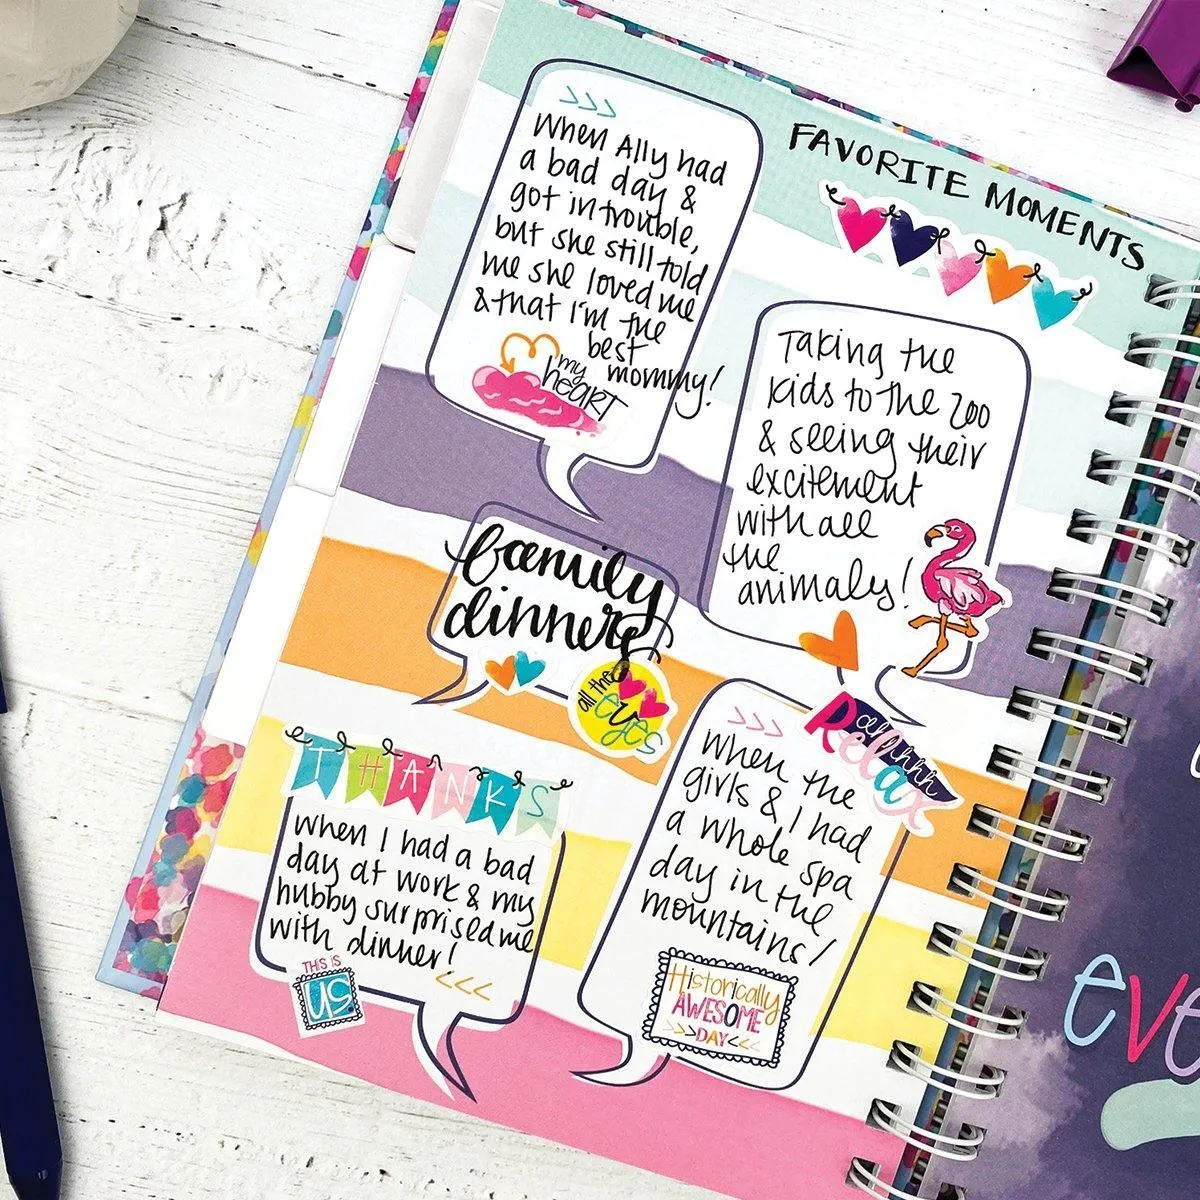 FAVORITE MOMENTS
>>>
When Ally had
a bad day &
got in trouble,
but she still told
me she loved me
& that I'm the
best
mommy!
my
heART
Taking the
kids to the zoo
& seeing their
excitement
with all
the
animals!
family
dinners
all the
eyes
THANKS
When I had a bad
day at work & my
hubby surprised me
with dinner!
<<<
THIS IS
US.
ahhhhh
Relax
>>>
When the
girls & I had
a whole spa
day in the
mountains!
Historically
AWESOME
>>>DAY<<<
eve